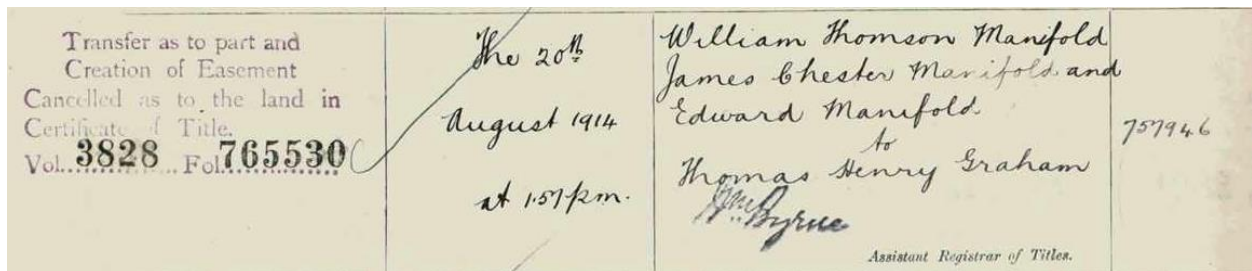 Transfer as to part and
Creation of Easement
Cancelled as to the land in
Certificate of Title.
Vol. 3828 Fol. 765530
The 20th
August 1914
at 1.57 p.m.
William Thomson Manifold
James Chester Manifold and
Edward Manifold
to
Thomas Henry Graham
Wm Byrne
Assistant Registrar of Titles.
757946